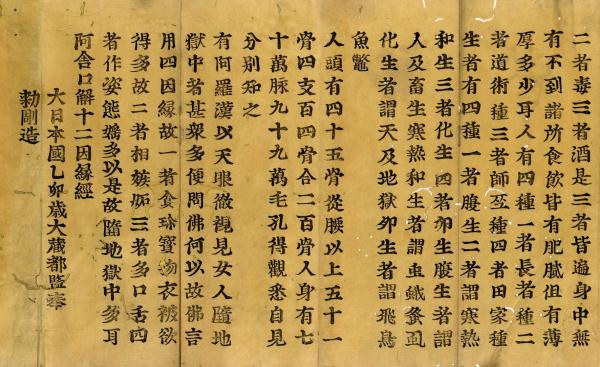 二者毒三者酒是三者皆遍身中無
有不到諸所食飲皆有肥膩但有薄
厚多少耳人有四種一者長者種二
者道術種三者師巫種四者田家種
生者有四種一者腹生二者謂寒熱
和生三者化生四者卵生腹生者謂
人及畜生寒熱和生者謂虫蛾蚤虱
化生者謂天及地獄卵生者謂飛鳥
魚鼈
人頭有四十五骨從腰以上五十一
骨四支百四骨合二百骨人身有七
十萬脉九十九萬毛孔得觀悉自見
分別知之
有阿羅漢以天眼徹視見女人墮地
獄中者甚衆多便問佛何以故佛言
用四因縁故一者貪珍寶物衣被欲
得多故二者相嫉妬三者多口舌四
者作姿態婬多以是故墮地獄中多耳
阿含口解十二因縁經
大日本國乙卯歲大藏都監奉
勅剛造